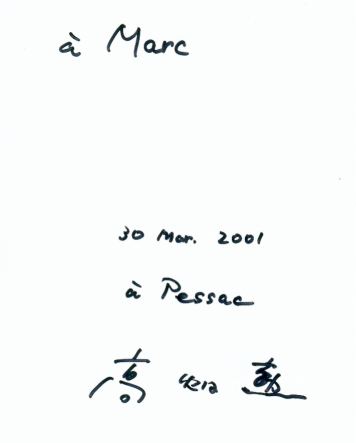 à Marc
30 Mar. 2001
à Pessac
高